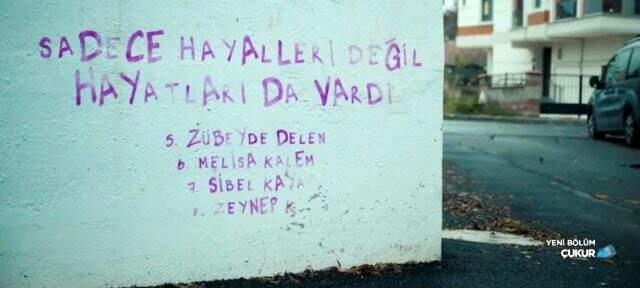 SADECE HAYALLERİ DEĞİL
HAYATLARI DA VARDI
5. ZÜBEYDE DELEN
6. MELİSA KALEM
7. SİBEL KAYA
8. ZEYNEP K
YENİ BÖLÜM
ÇUKUR